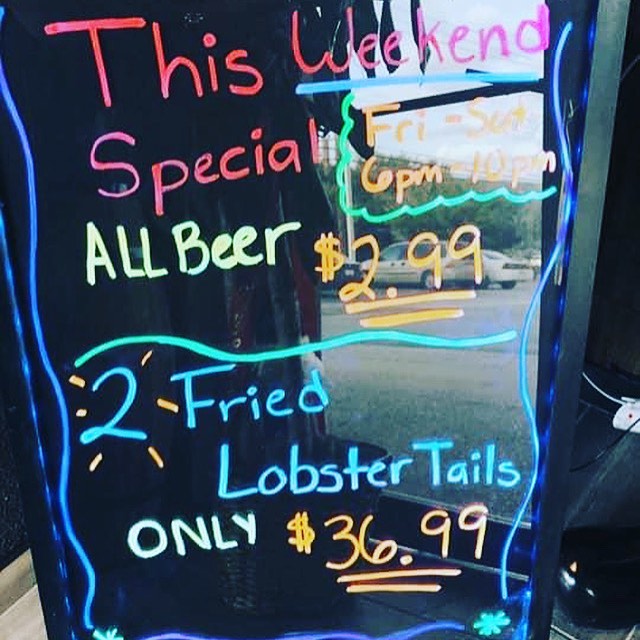 This Weekend
Special Fri - Sat
6pm - 10pm
ALL Beer $2.99
2 Fried
Lobster Tails
ONLY $36.99